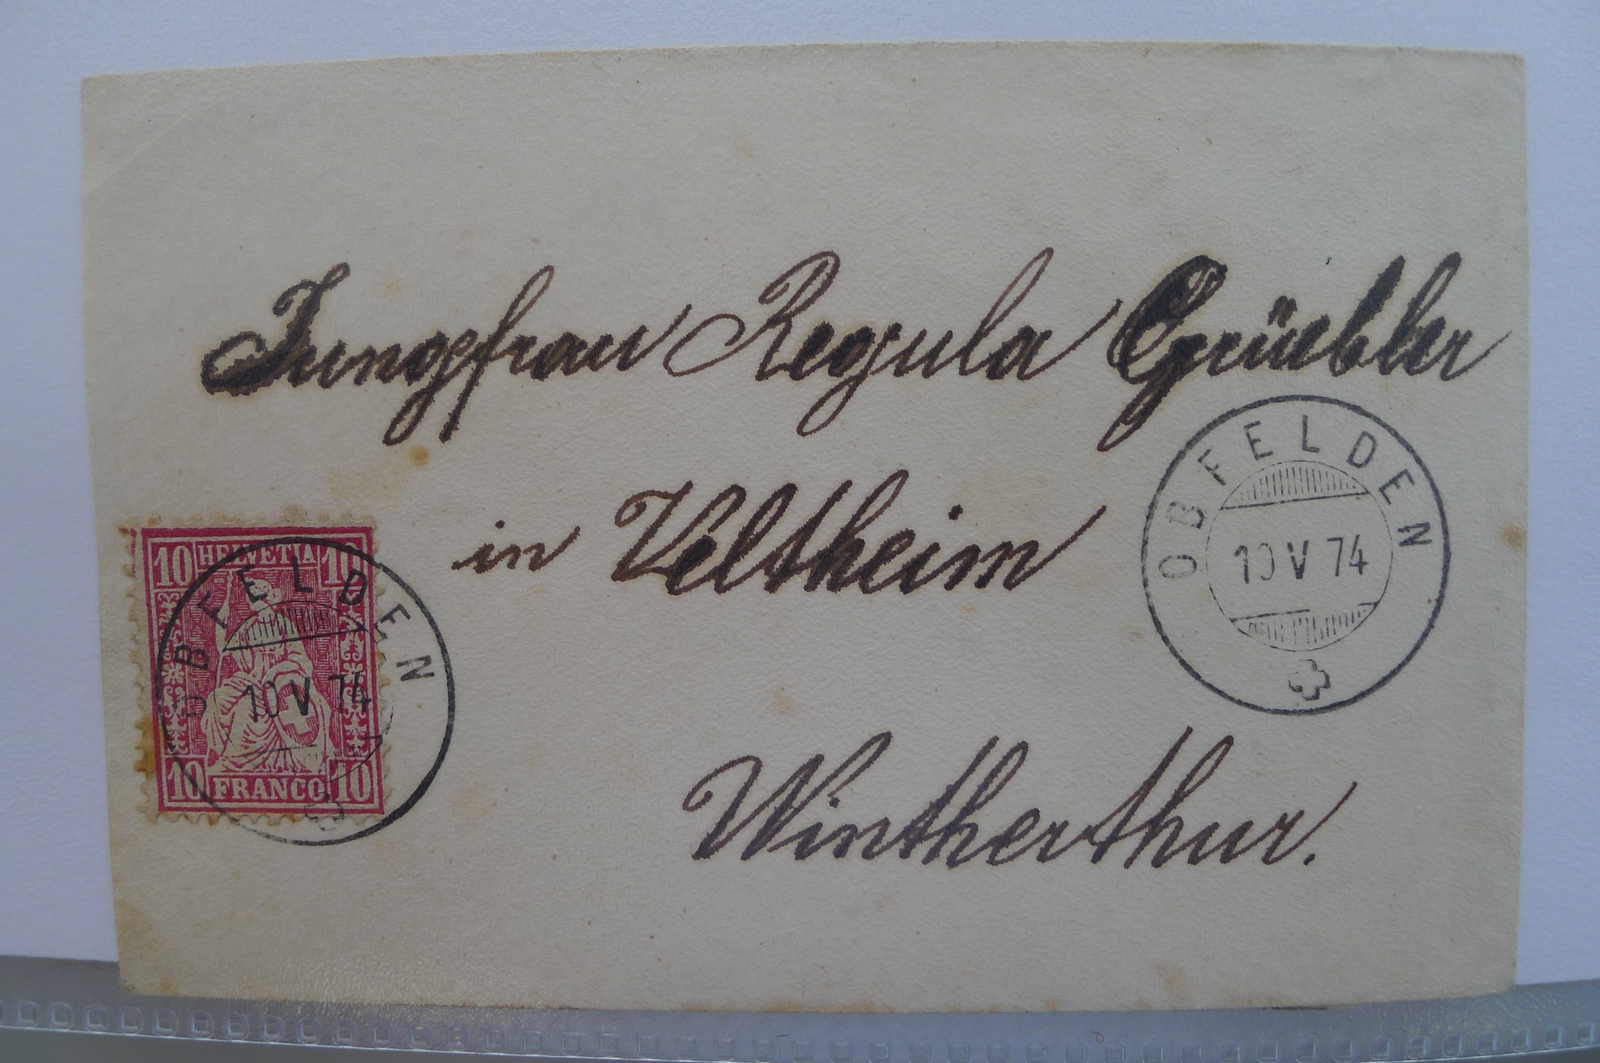 Jungfrau Regula Grüebler
in Veltheim
Wintherthur.
OBFELDEN
10 V 74
10 HELVETIA 10
10 FRANCO 10
OBFELDEN
10 V 74